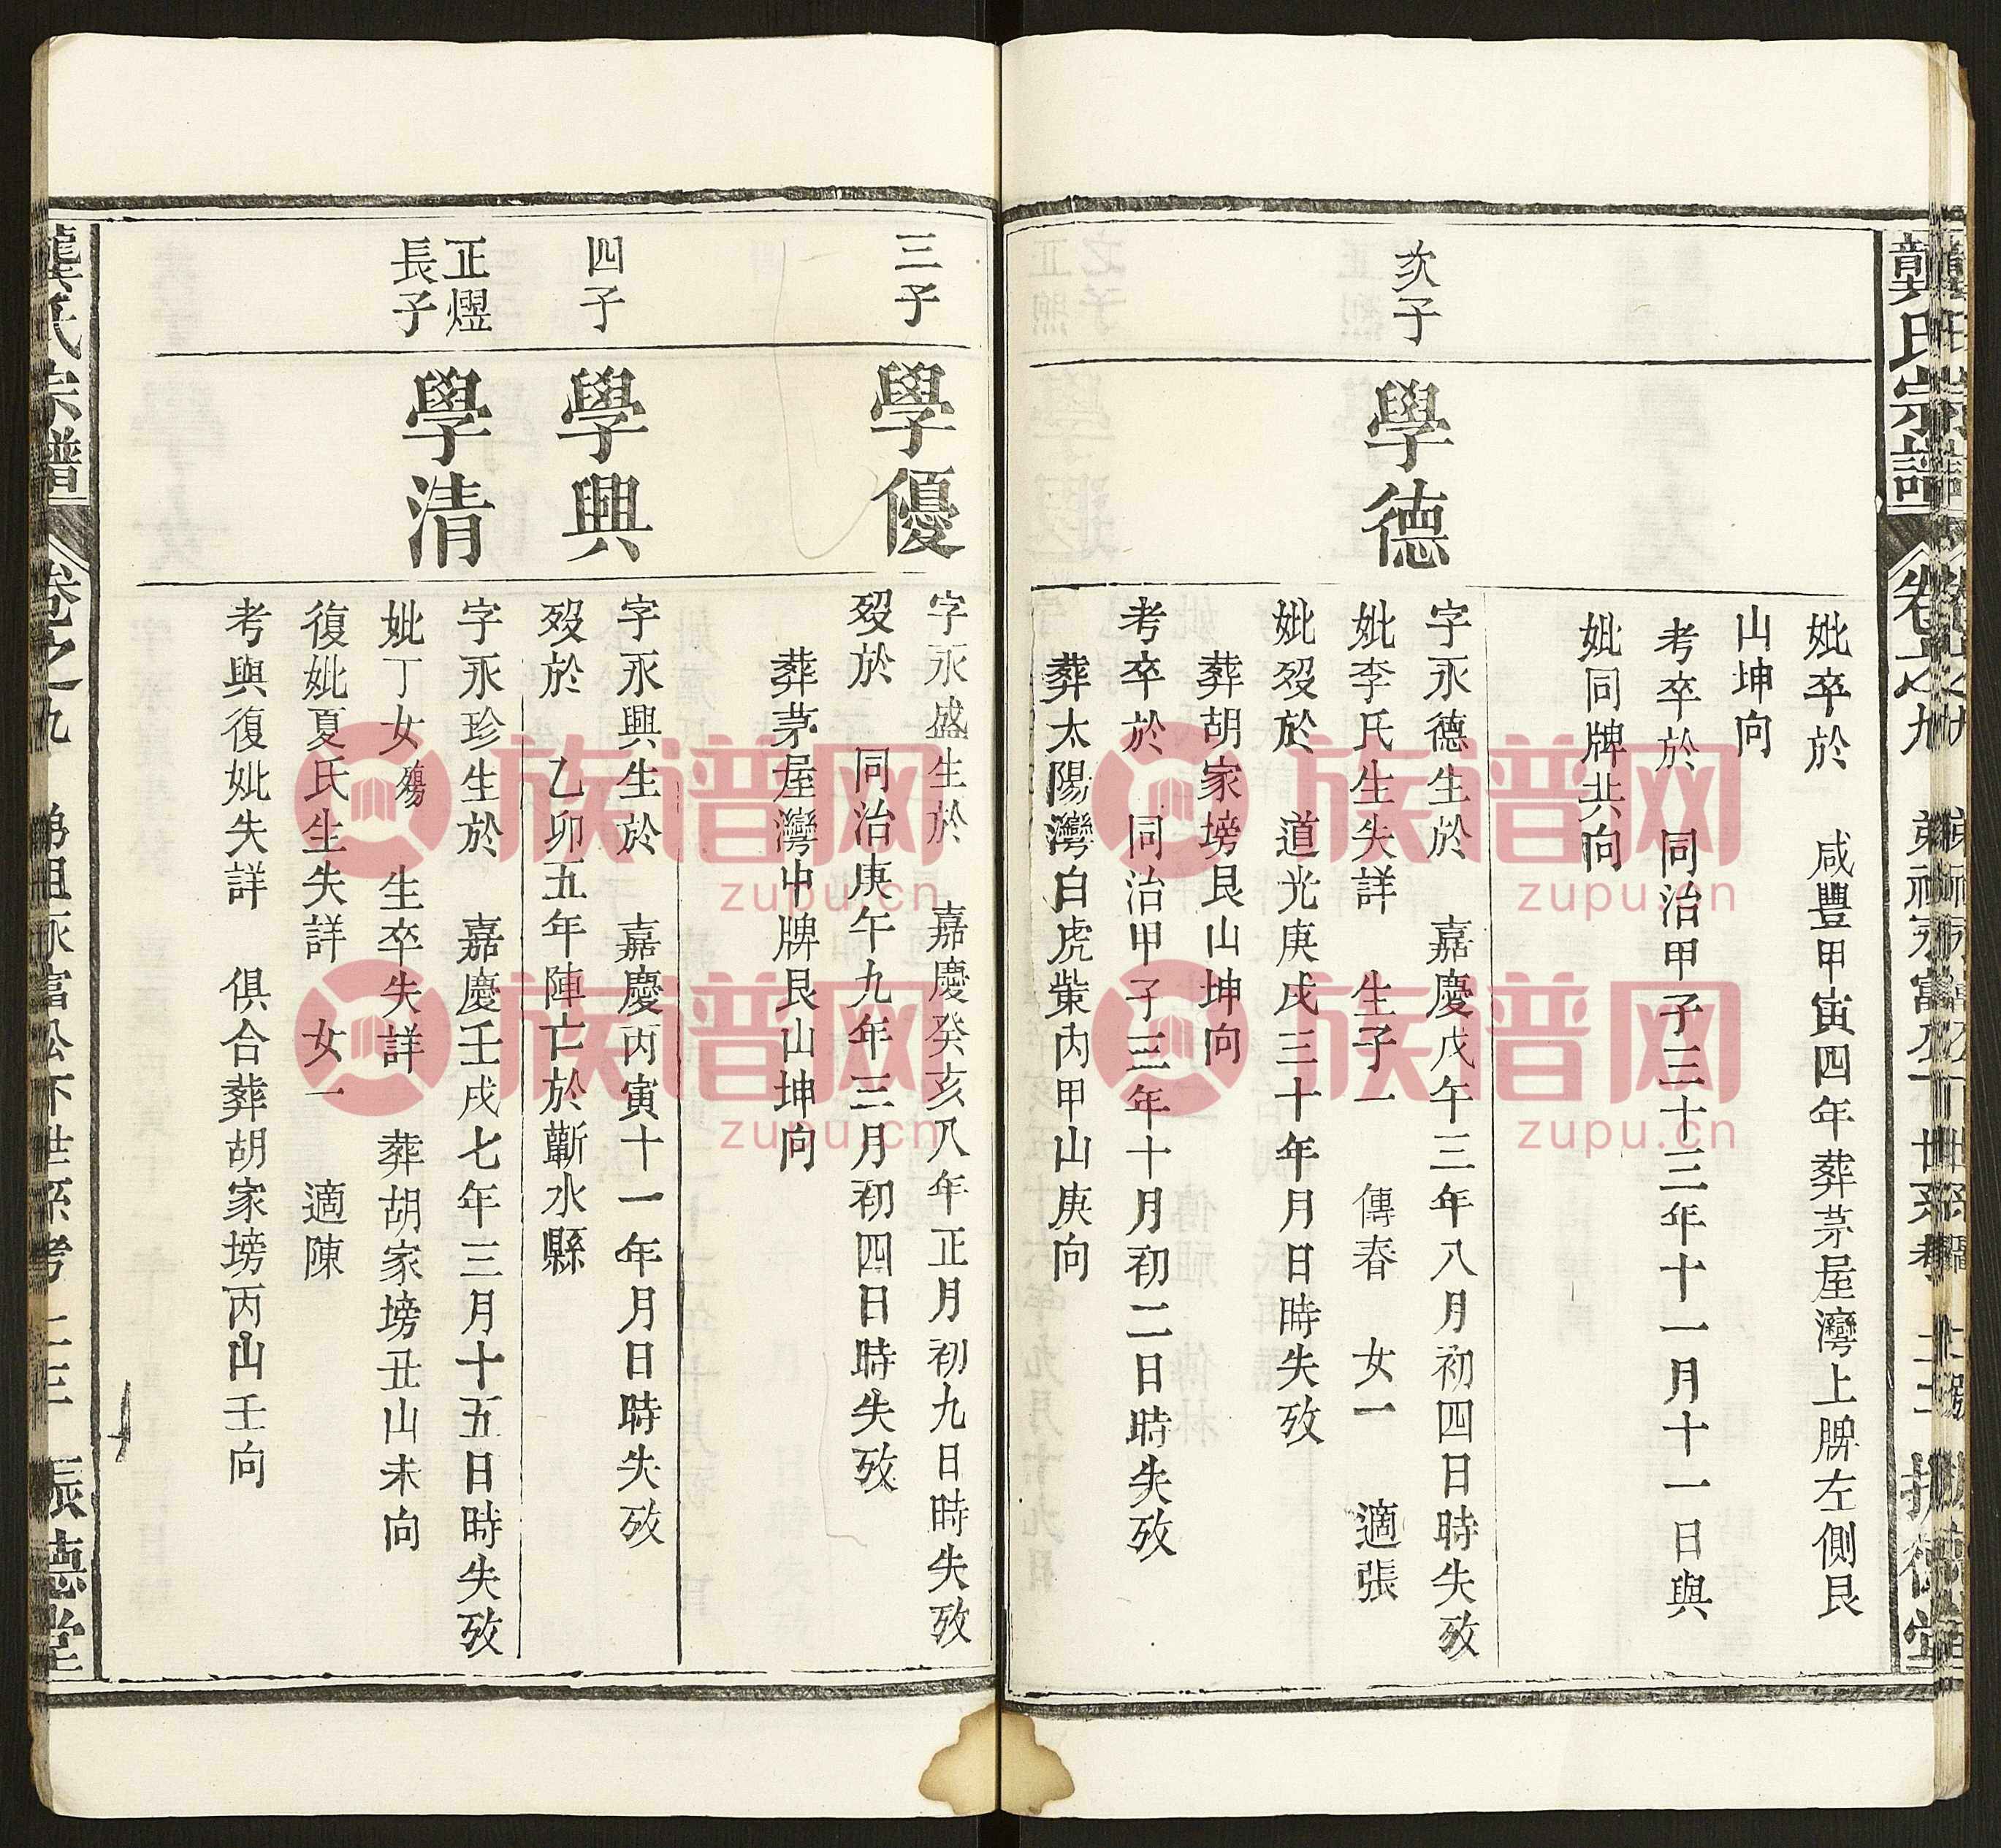 龔氏宗譜 卷之九 振德堂
妣卒於 咸豐甲寅四年葬茅屋灣上牌左側艮
山坤向
考卒於 同治甲子三十三年十一月十一日與
妣同牌共向
次子
學德
字永德生於 嘉慶戊午三年八月初四日時失攷
妣李氏生失詳 生子一 傳春 女一 適張
妣歿於 道光庚戌三十年月日時失攷
葬胡家塝艮山坤向
考卒於 同治甲子三年十月初二日時失攷
葬太陽灣白虎柴內甲山庚向
三子
學優
字永盛生於 嘉慶癸亥八年正月初九日時失攷
歿於 同治庚午九年三月初四日時失攷
葬茅屋灣中牌艮山坤向
四子
學興
字永興生於 嘉慶丙寅十一年月日時失攷
歿於 乙卯五年陣亡於蘄水縣
正熤
長子
學清
字永珍生於 嘉慶壬戌七年三月十五日時失攷
妣丁女殤 生卒失詳 葬胡家塝丑山未向
復妣夏氏生失詳 女一 適陳
考與復妣失詳 俱合葬胡家塝丙山壬向
龔氏宗譜 卷之九 永富公下世系考 振德堂
族谱网
zupu.cn
族谱网
zupu.cn
族谱网
zupu.cn
族谱网
zupu.cn